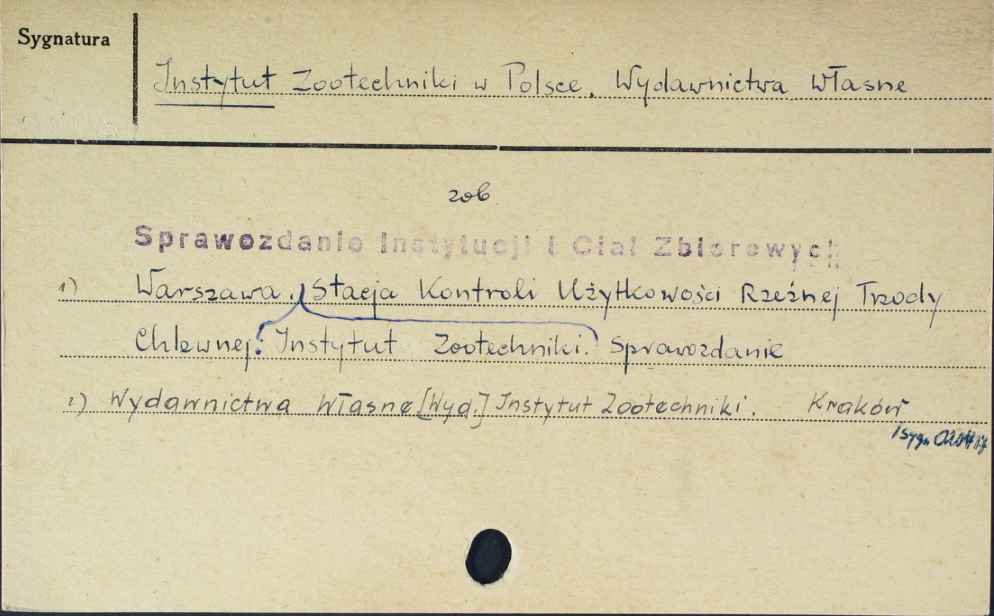 Sygnatura
Instytut Zootechniki w Polsce. Wydawnictwa Własne
zob.
Sprawozdanie Instytucji i Ciał Zbiorowych
1) Warszawa. Stacja Kontroli Użytkowości Rzeźnej Trzody
Chlewnej: Instytut Zootechniki. Sprawozdanie
2) Wydawnictwa Własne [Wyd.] Instytut Zootechniki. Kraków
/sygn